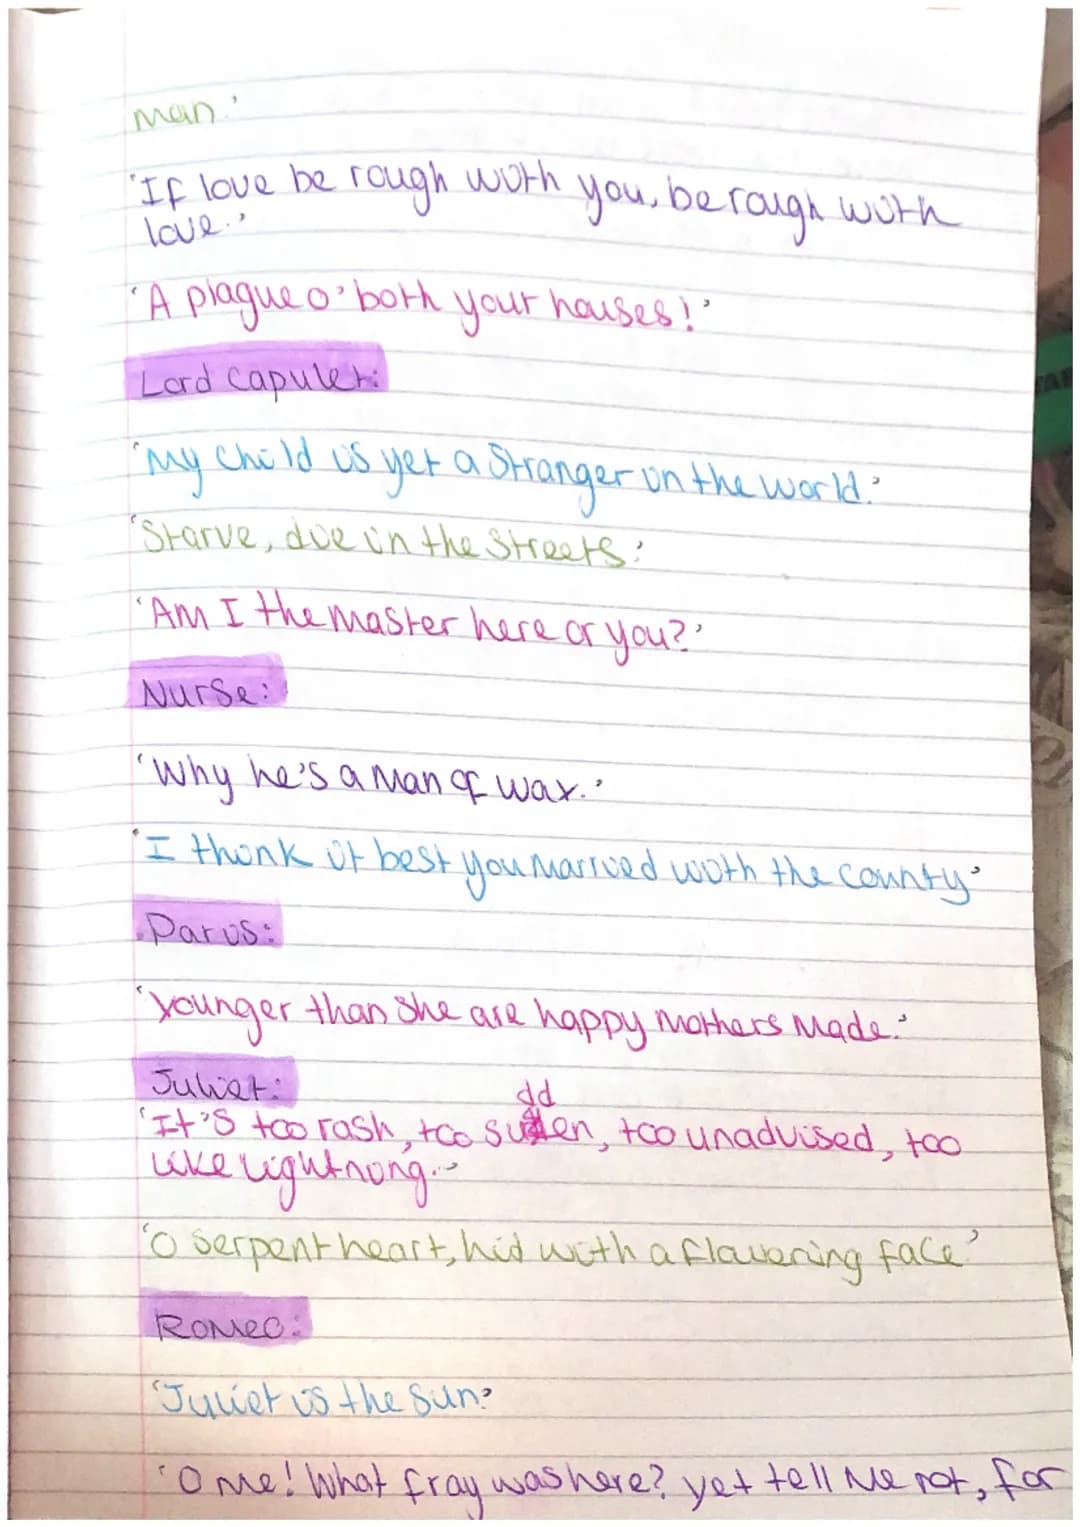 man.'
'If love be rough with you, be rough with
love.'
'A plague o' both your houses!'
Lord Capulet:
'My child is yet a stranger in the world.'
'Starve, die in the streets.'
'Am I the master here or you?'
Nurse:
'Why he's a man of wax.'
'I think it best you married with the county'
Paris:
'Younger than she are happy mothers made.'
Juliet:
dd
'It's too rash, too sudden, too unadvised, too
like lightning.'
'O serpent heart, hid with a flowering face'
Romeo:
'Juliet is the sun.'
'O me! What fray was here? yet tell me not, for